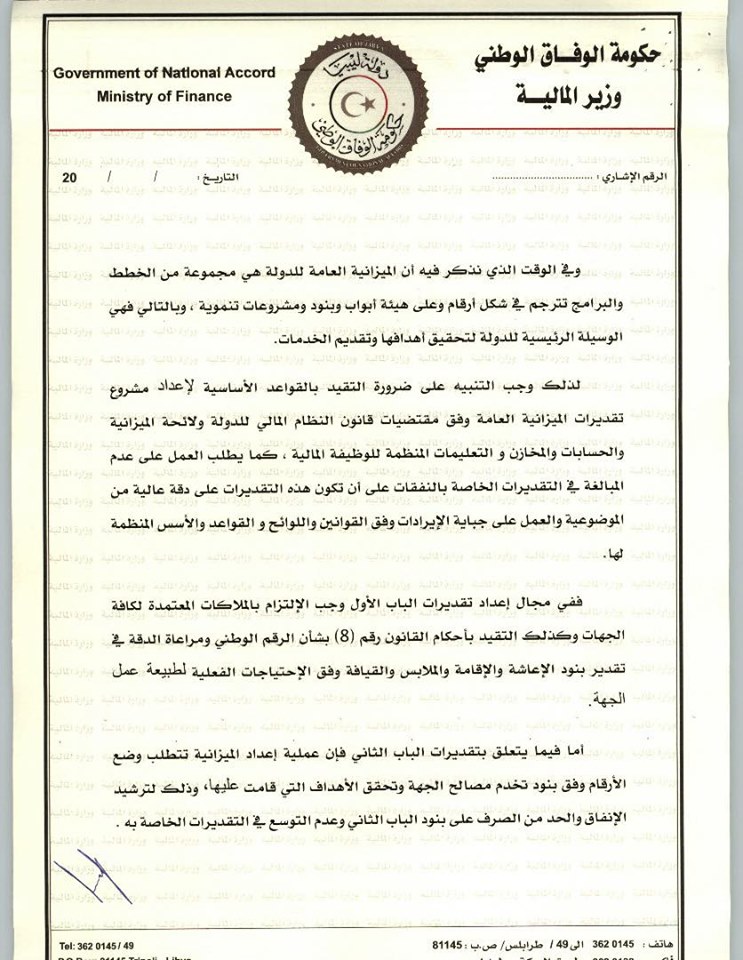 حكومة الوفـاق الوطني
وزير الماليـــة
Government of National Accord
Ministry of Finance
STATE OF LIBYA
دولة ليبيا
حكومة الوفاق الوطني
الرقم الإشاري : ................................
التاريخ : / / 20
وفي الوقت الذي نذكر فيه أن الميزانية العامة للدولة هي مجموعة من الخطط
والبرامج تترجم في شكل أرقام وعلى هيئة أبواب وبنود ومشروعات تنموية ، وبالتالي فهي
الوسيلة الرئيسية للدولة لتحقيق أهدافها وتقديم الخدمات.
لذلك وجب التنبيه على ضرورة التقيد بالقواعد الأساسية لإعداد مشروع
تقديرات الميزانية العامة وفق مقتضيات قانون النظام المالي للدولة ولائحة الميزانية
والحسابات والمخازن و التعليمات المنظمة للوظيفة المالية ، كما يطلب العمل على عدم
المبالغة في التقديرات الخاصة بالنفقات على أن تكون هذه التقديرات على دقة عالية من
الموضوعية والعمل على جباية الإيرادات وفق القوانين واللوائح و القواعد والأسس المنظمة
لها.
ففي مجال إعداد تقديرات الباب الأول وجب الإلتزام بالملاكات المعتمدة لكافة
الجهات وكذلك التقيد بأحكام القانون رقم (8) بشأن الرقم الوطني ومراعاة الدقة في
تقدير بنود الإعاشة والإقامة والملابس والقيافة وفق الإحتياجات الفعلية لطبيعة عمل
الجهة.
أما فيما يتعلق بتقديرات الباب الثاني فإن عملية إعداد الميزانية تتطلب وضع
الأرقام وفق بنود تخدم مصالح الجهة وتحقق الأهداف التي قامت عليها، وذلك لترشيد
الإنفاق والحد من الصرف على بنود الباب الثاني وعدم التوسع في التقديرات الخاصة به .
هاتف : 0145 362 الى 49 / طرابلس/ ص.ب : 81145
Tel: 362 0145 / 49